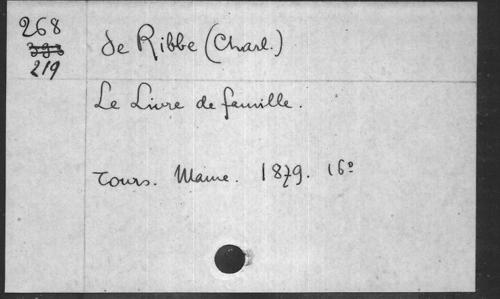 268
219
de Ribbe (Charl.)
Le Livre de famille.
Tours. Mame. 1879. 16°